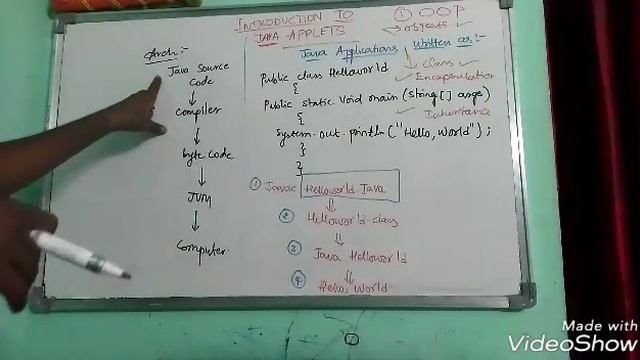 INTRODUCTION TO
JAVA APPLETS
① OOP
→ objects ✓
Arch:-
Java Source
Code
↓
Compiler
↓
byte code
↓
JVM
↓
Computer
Java Applications written as:-
↓ class ✓
Public class Helloworld
✓ Encapsulation
{
Public static void main (string [] args)
✓ Inheritance
{
System.out.println ("Hello, World");
}
}
① Javac Helloworld.Java
⇓
② Helloworld.class
⇓
③ Java Helloworld
⇓
④ Hello, World
Made with
VideoShow